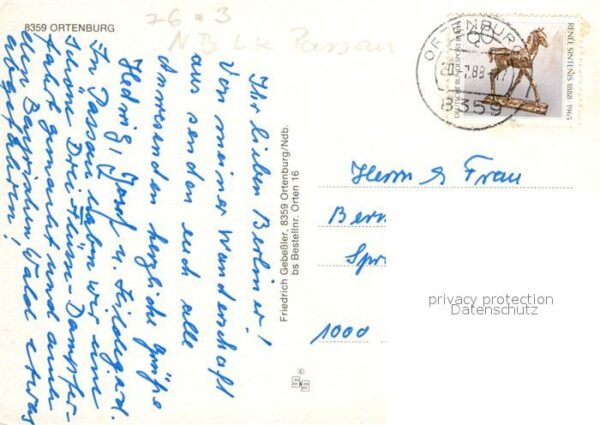 8359 ORTENBURG
26.3
NB LK Passau
Ihr lieben Berliner!
Von meiner Wanderschaft
aus senden euch alle
Anwesenden herzliche Grüße
Hedwig, Josef u. Hildegard.
In Passau haben wir eine
schöne Drei Flüsse-Dampfer-
fahrt gemacht und auch
den Bayrischen Wald etwas
abgefahren!
Friedrich Gebeßler, 8359 Ortenburg/Ndb.
bs Bestellnr. Orten 16
ORTENBURG
8359
60
DEUTSCHE BUNDESPOST BERLIN
RENÉE SINTENIS 1888-1965
Herrn & Frau
Ber
Spr
1000
privacy protection
Datenschutz